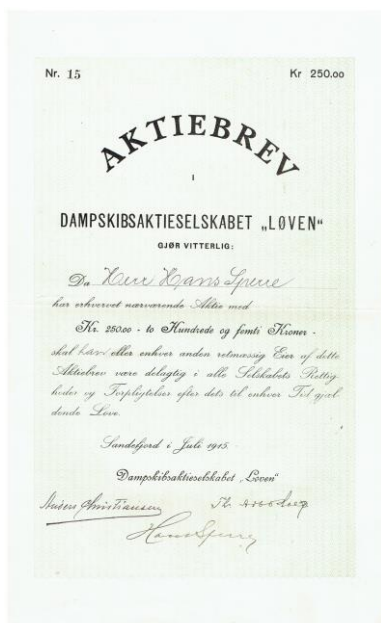 Nr. 15 Kr 250.00
AKTIEBREV
I
DAMPSKIBSAKTIESELSKABET „LØVEN“
GJØR VITTERLIG:
Da Herr Hans Sperre
har erhvervet nærværende Aktie med
Kr. 250.00 - to Hundrede og femti Kroner -
skal han eller enhver anden retmæssig Eier af dette
Aktiebrev være delagtig i alle Selskabets Rettig-
heder og Forpligtelser efter dets til enhver Tid gjæl-
dende Love.
Sandefjord i Juli 1915.
Dampskibsaktieselskabet „Løven“
Anders Christiansen Th.
Hans Sperre